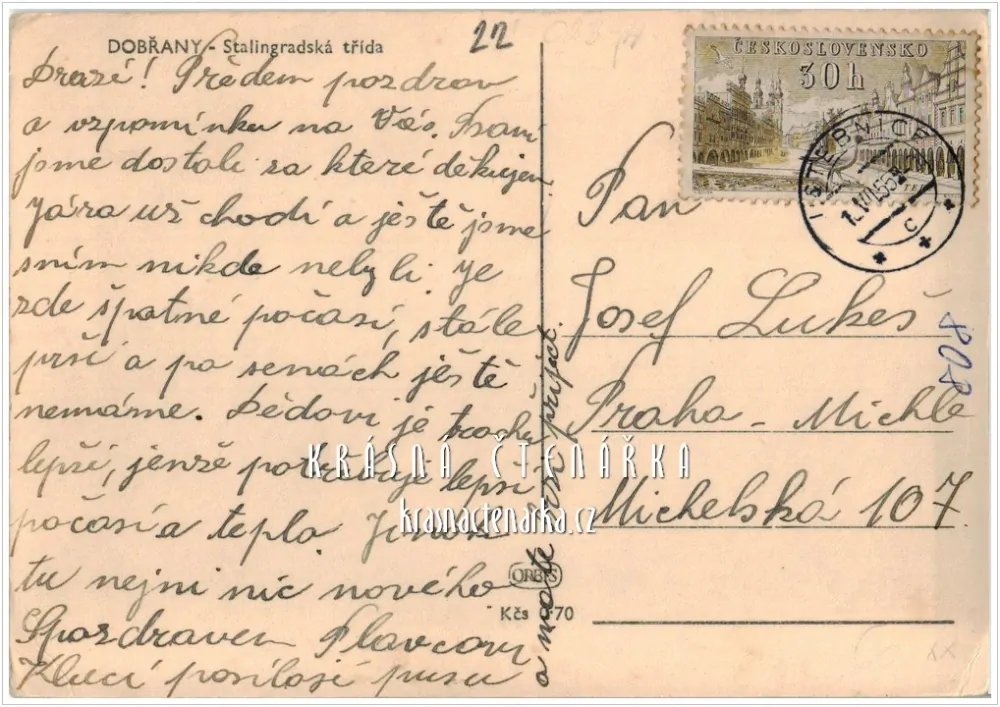 DOBŘANY - Stalingradská třída
22
Drazí! Předem pozdrav
a vzpomínku na Vás. Psaní
jsme dostali za které děkujem
Jára už chodí a ještě jsme
sním nikde nebyli. Je
zde špatné počasí, stále
prší a po senách ještě
nemáme. Dědovi je trochu
lepší, jenže potřebuje lepší
počasí a teplo. Jinak
tu nejni nic nového
Spozdravem Flavcovi
Kluci posílají pusu
a máte přijet.
ČESKOSLOVENSKO
30h
Pan
Josef Lukeš
Praha - Michle
Michelská 107
808
KRÁSNÁ ČTENÁŘKA
krasnactenarka.cz
ORBIS
Kčs 70